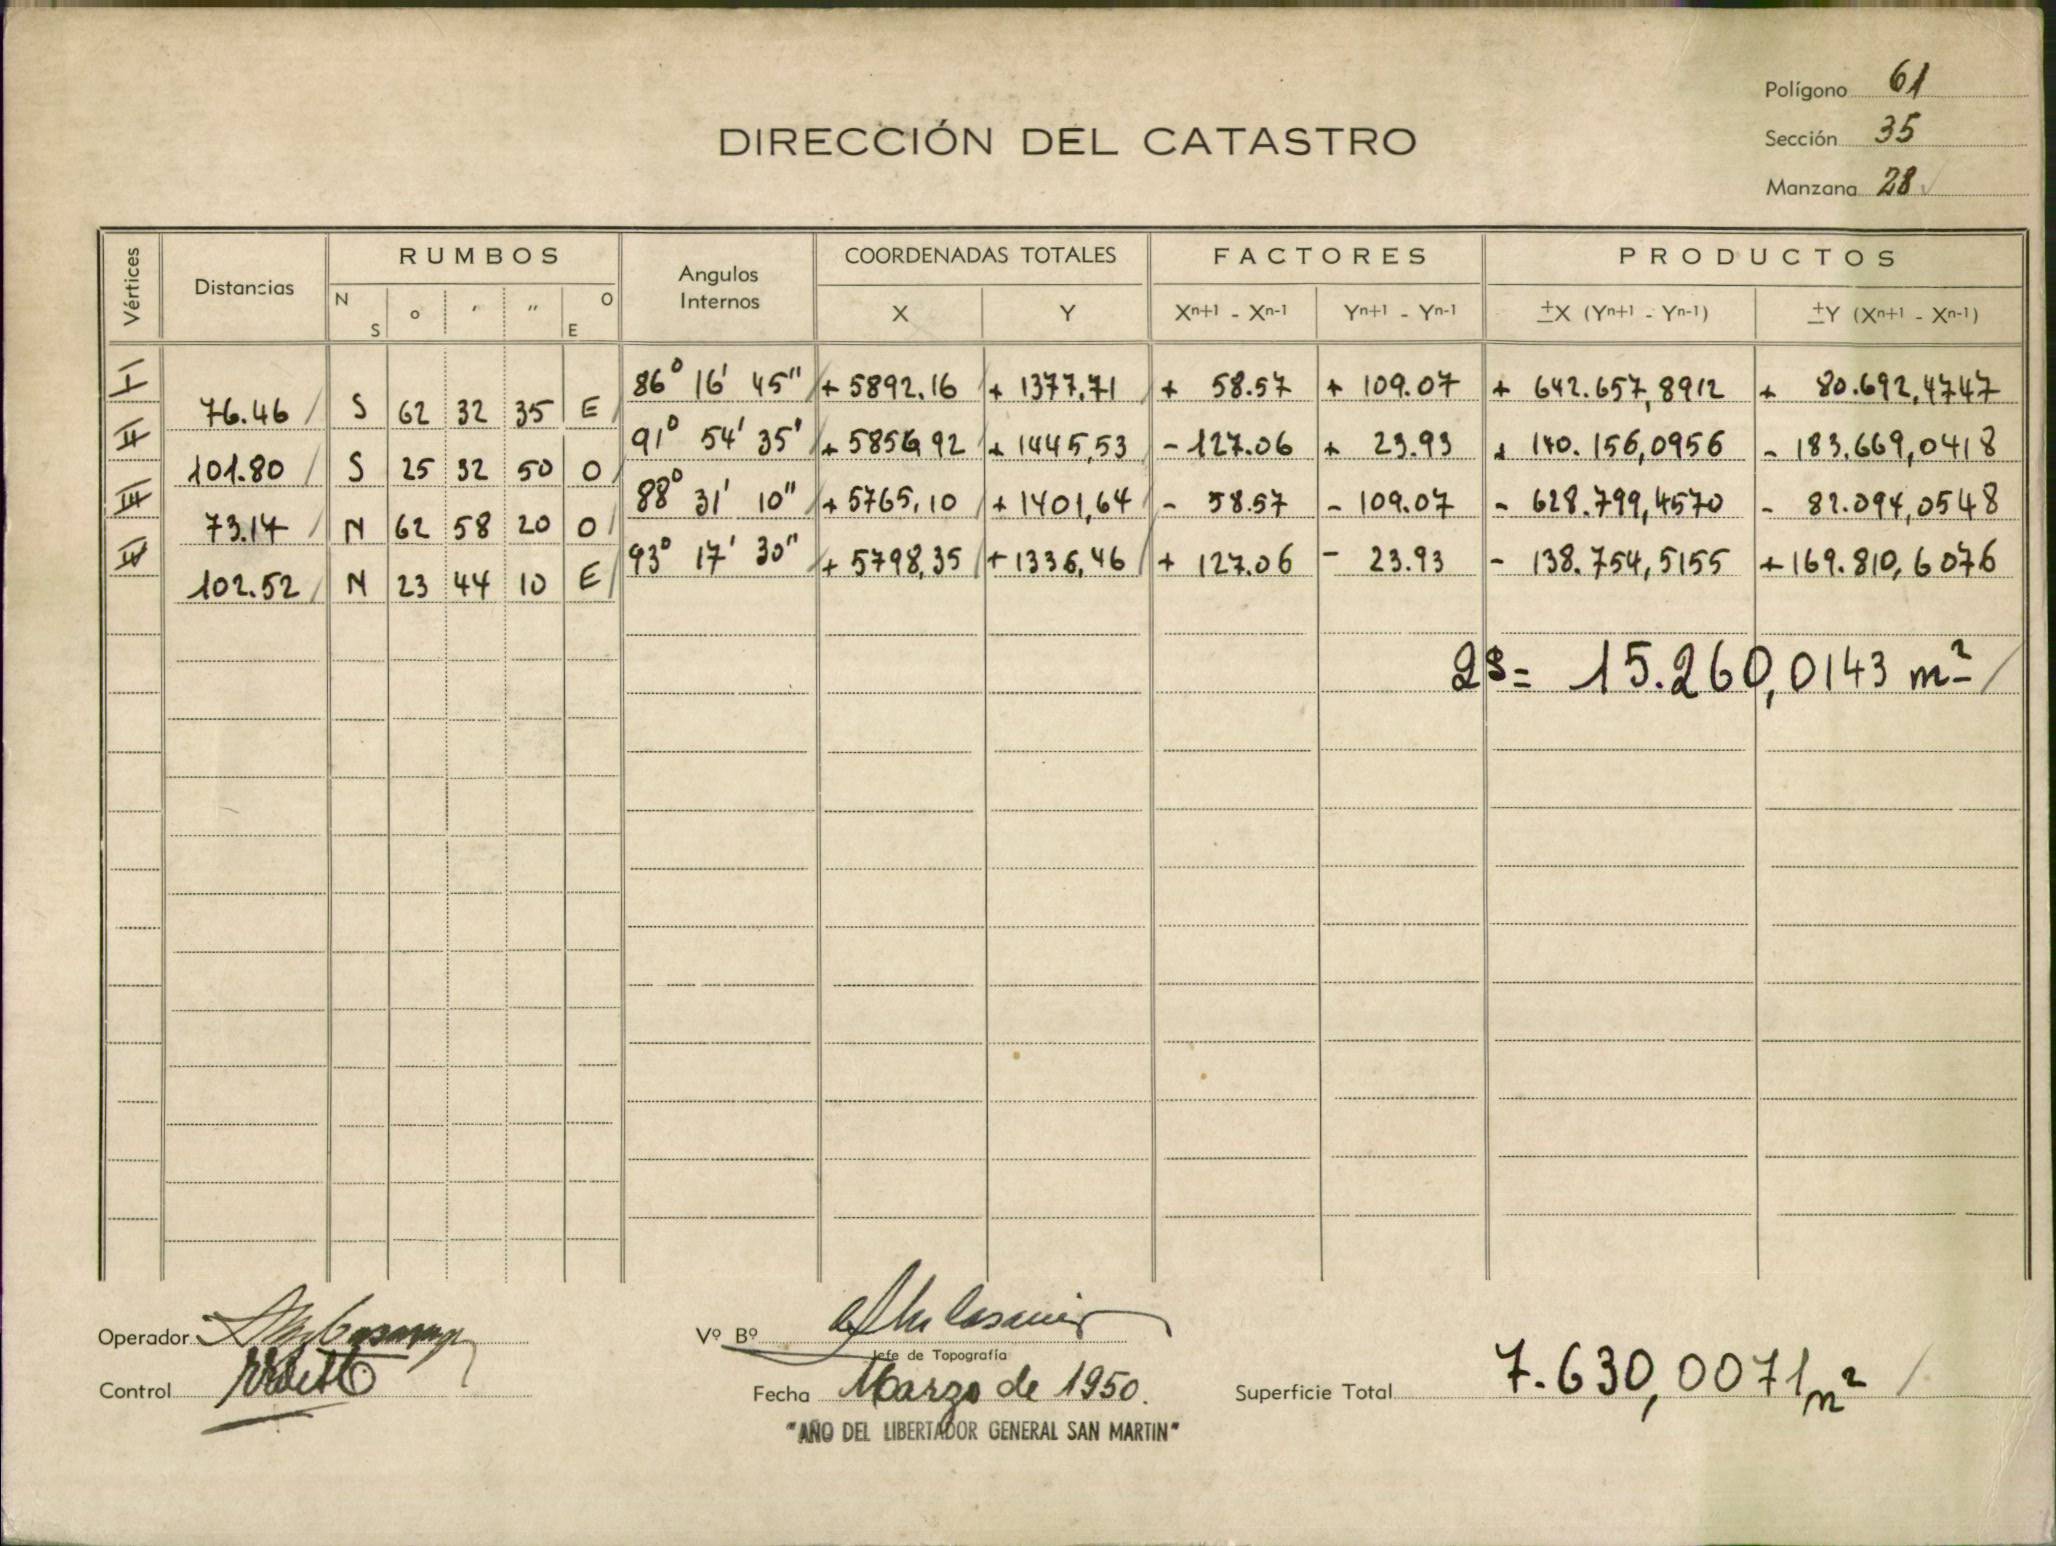 Polígono 61
DIRECCIÓN DEL CATASTRO
Sección 35
Manzana 28
Vértices Distancias RUMBOS Angulos Internos COORDENADAS TOTALES FACTORES PRODUCTOS
N S o ′ ″ O E X Y Xn+1 - Xn-1 Yn+1 - Yn-1 ±X (Yn+1 - Yn-1) ±Y (Xn+1 - Xn-1)
I 86° 16' 45" + 5892.16 + 1377.71 + 58.57 + 109.07 + 642.657,8912 + 80.692,4747
76.46 S 62 32 35 E
II 91° 54' 35' + 5856,92 + 1445,53 - 127.06 + 23.93 + 140.156,0956 - 183.669,0418
101.80 S 25 32 50 O
III 88° 31' 10" + 5765,10 + 1401,64 - 58.57 - 109.07 - 628.799,4570 - 82.094,0548
73.14 N 62 58 20 O
IV 93° 17' 30" + 5798,35 + 1336,46 + 127.06 - 23.93 - 138.754,5155 + 169.810,6076
102.52 N 23 44 10 E
2S = 15.260,0143 m²
Operador
Vº Bº
Jefe de Topografía
Control
Fecha Marzo de 1950.
Superficie Total 7.630,0071 m²
"AÑO DEL LIBERTADOR GENERAL SAN MARTIN"